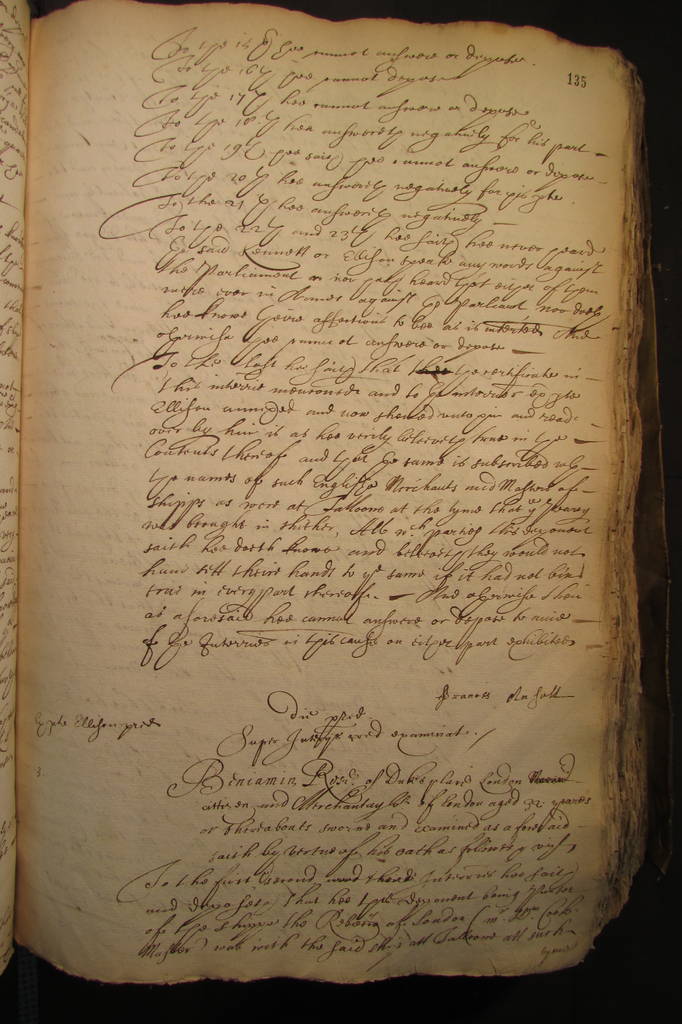 135
To the 15th hee cannot answere or depose.
To the 16th hee cannot depose
To the 17th hee cannot answere or depose
To the 18th hee answereth negatively for his part
To the 19th hee saith hee cannot answere or depose
To the 20th hee answereth negatively for his parte.
To the 21th hee answereth negatively
To the 22th and 23th hee saith hee never heard
the said Kennett or Ellison speake any words against
the Parliament or nor hath heard that either of them
were ever in Armes against the Parliament nor doth
hee knowe theire affections to bee as is interred And
otherwise hee cannot answere or depose
To the last hee saith that the certificate in
this interrie mencioned and to the interries ex parte
Ellison annexed and now shewed unto him and read
over by him is as hee verily beleeveth true in the
Contents thereof and that the same is subscribed with
the names of such English Merchants and Masters of
shipps as were at Talloone at the tyme that they were
brought in thither, All which parties this deponent
saith hee doth knowe and beleeveth they would not
have sett theire hands to ye same if it had not bin
true in every part thereof. And otherwise then
as aforesaid hee cannot answere or depose to anie
of the Interries in this cause on either part exhibited
Frances
Die pred
Ex parte Ellison pred
Super Interr pred examinat.
3.
Beniamin of Dukes place London
citizen and Merchantaylor of London aged 32 yeares
or thereabouts sworne and examined as aforesaid
saith by vertue of his oath as followeth viz,
To the first second and third Interries hee saith
and deposeth That hee this deponent being
of the shipp the Rebecca of London Cock
Master was with the said shipp att Tallone att such
tyme